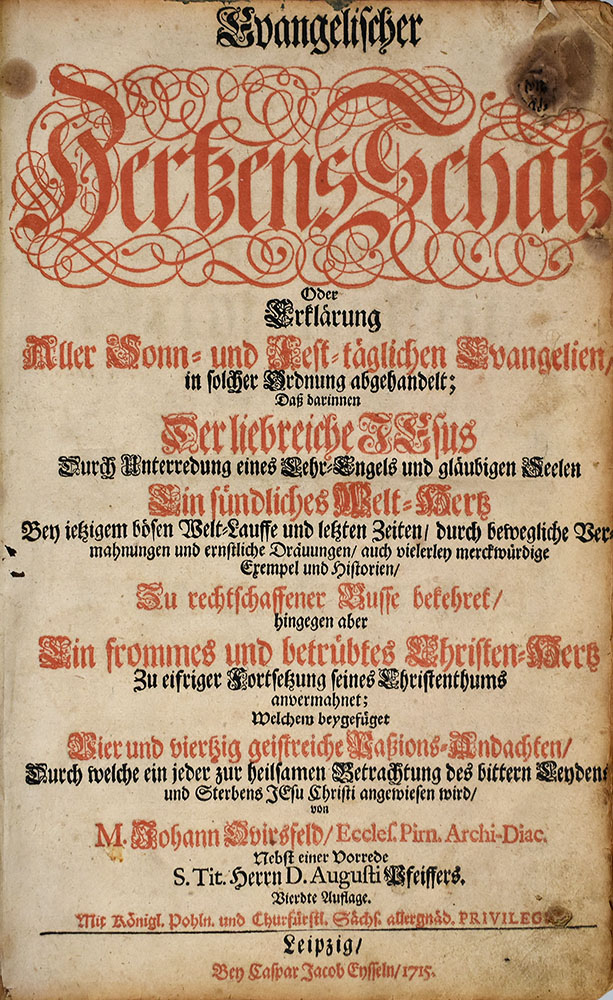 Evangelischer
Hertzens Schatz
Oder
Erklärung
Aller Sonn- und Fest-täglichen Evangelien/
in solcher Ordnung abgehandelt;
Daß darinnen
Der liebreiche JEsus
Durch Unterredung eines Lehr-Engels und gläubigen Seelen
Ein sündliches Welt-Hertz
Bey jetzigem bösen Welt-Lauffe und letzten Zeiten/ durch bewegliche Ver-
mahnungen und ernstliche Dräuungen/ auch vielerley merckwürdige
Exempel und Historien/
Zu rechtschaffener Busse bekehret/
hingegen aber
Ein frommes und betrübtes Christen-Hertz
Zu eifriger Fortsetzung seines Christenthums
anvermahnet;
Welchem beygefüget
Vier und viertzig geistreiche Paßions-Andachten/
Durch welche ein jeder zur heilsamen Betrachtung des bittern Leydens
und Sterbens JEsu Christi angewiesen wird/
von
M. Johann Qvirsfeld/ Eccles. Pirn. Archi-Diac.
Nebst einer Vorrede
S. Tit. Herrn D. Augusti Pfeiffers.
Vierdte Auflage.
Mit Königl. Pohln. und Churfürstl. Sächs. allergnäd. PRIVILEGIO
Leipzig/
Bey Caspar Jacob Eysseln/ 1715.